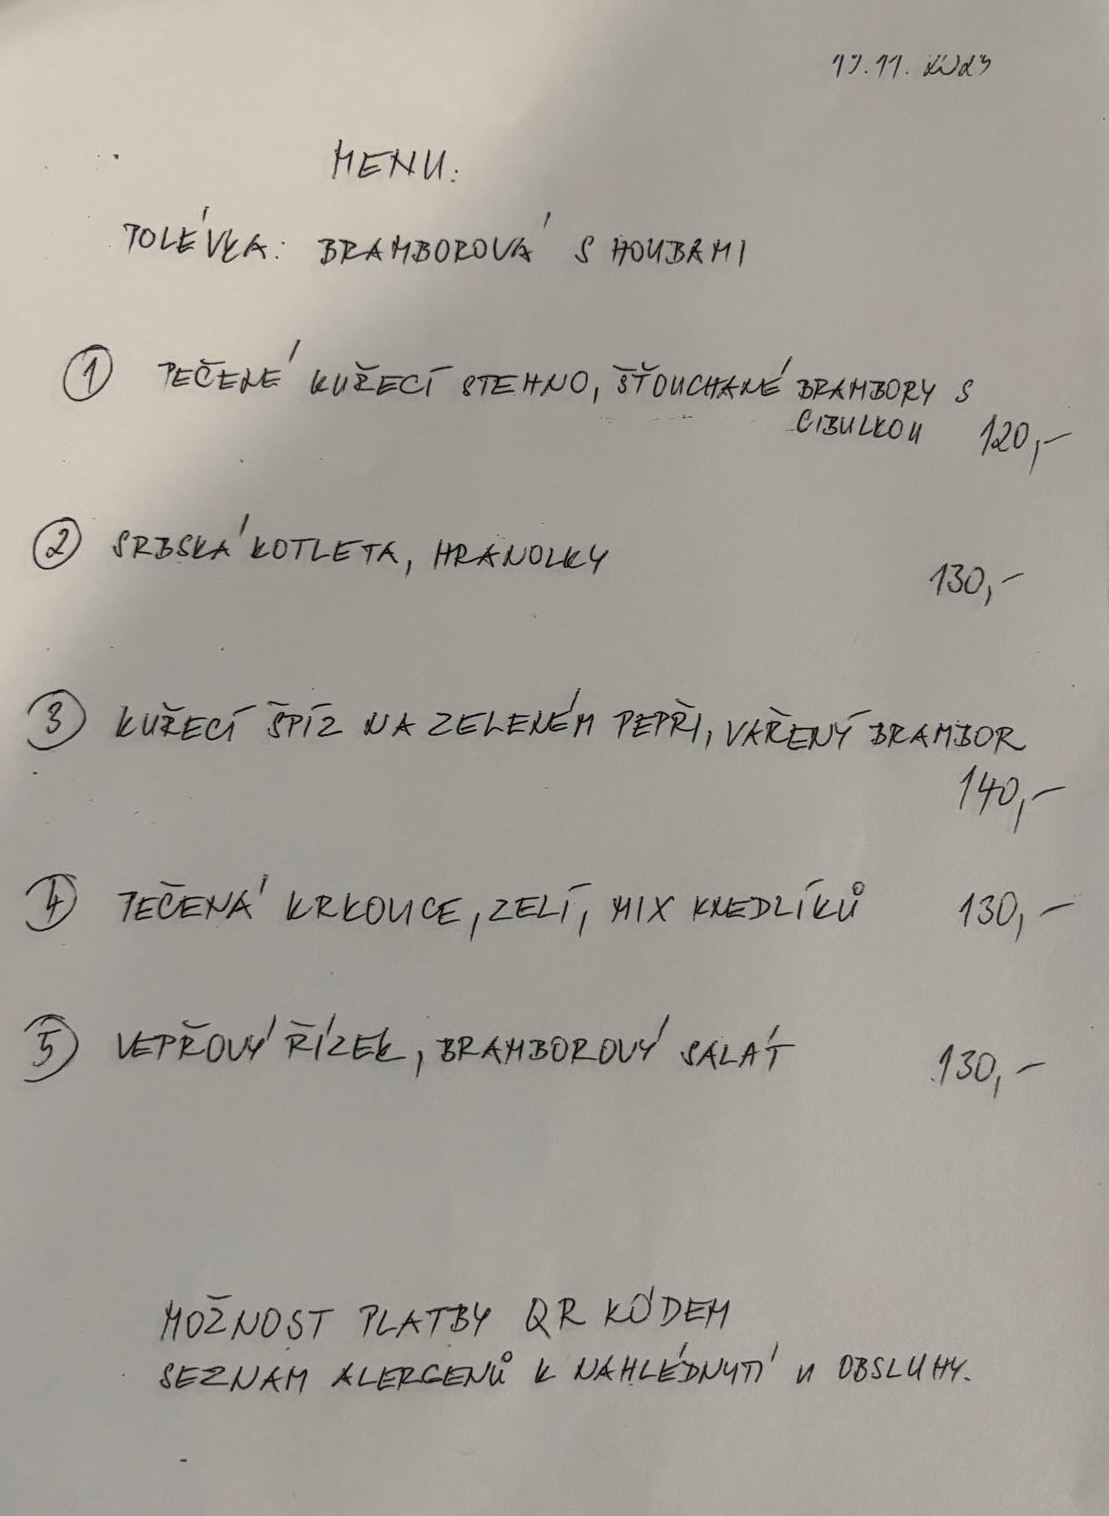 MENU:
POLÉVKA: BRAMBOROVÁ S HOUBAMI
1 PEČENÉ KUŘECÍ STEHNO, ŠŤOUCHANÉ BRAMBORY S
CIBULKOU 120,-
2 SRBSKÁ KOTLETA, HRANOLKY 130,-
3 KUŘECÍ ŠPÍZ NA ZELENÉM PEPŘI, VAŘENÝ BRAMBOR
140,-
4 PEČENÁ KRKOVICE, ZELÍ, MIX KNEDLÍKŮ 130,-
5 VEPŘOVÝ ŘÍZEK, BRAMBOROVÝ SALÁT 130,-
MOŽNOST PLATBY QR KÓDEM
SEZNAM ALERGENŮ K NAHLÉDNUTÍ U OBSLUHY.